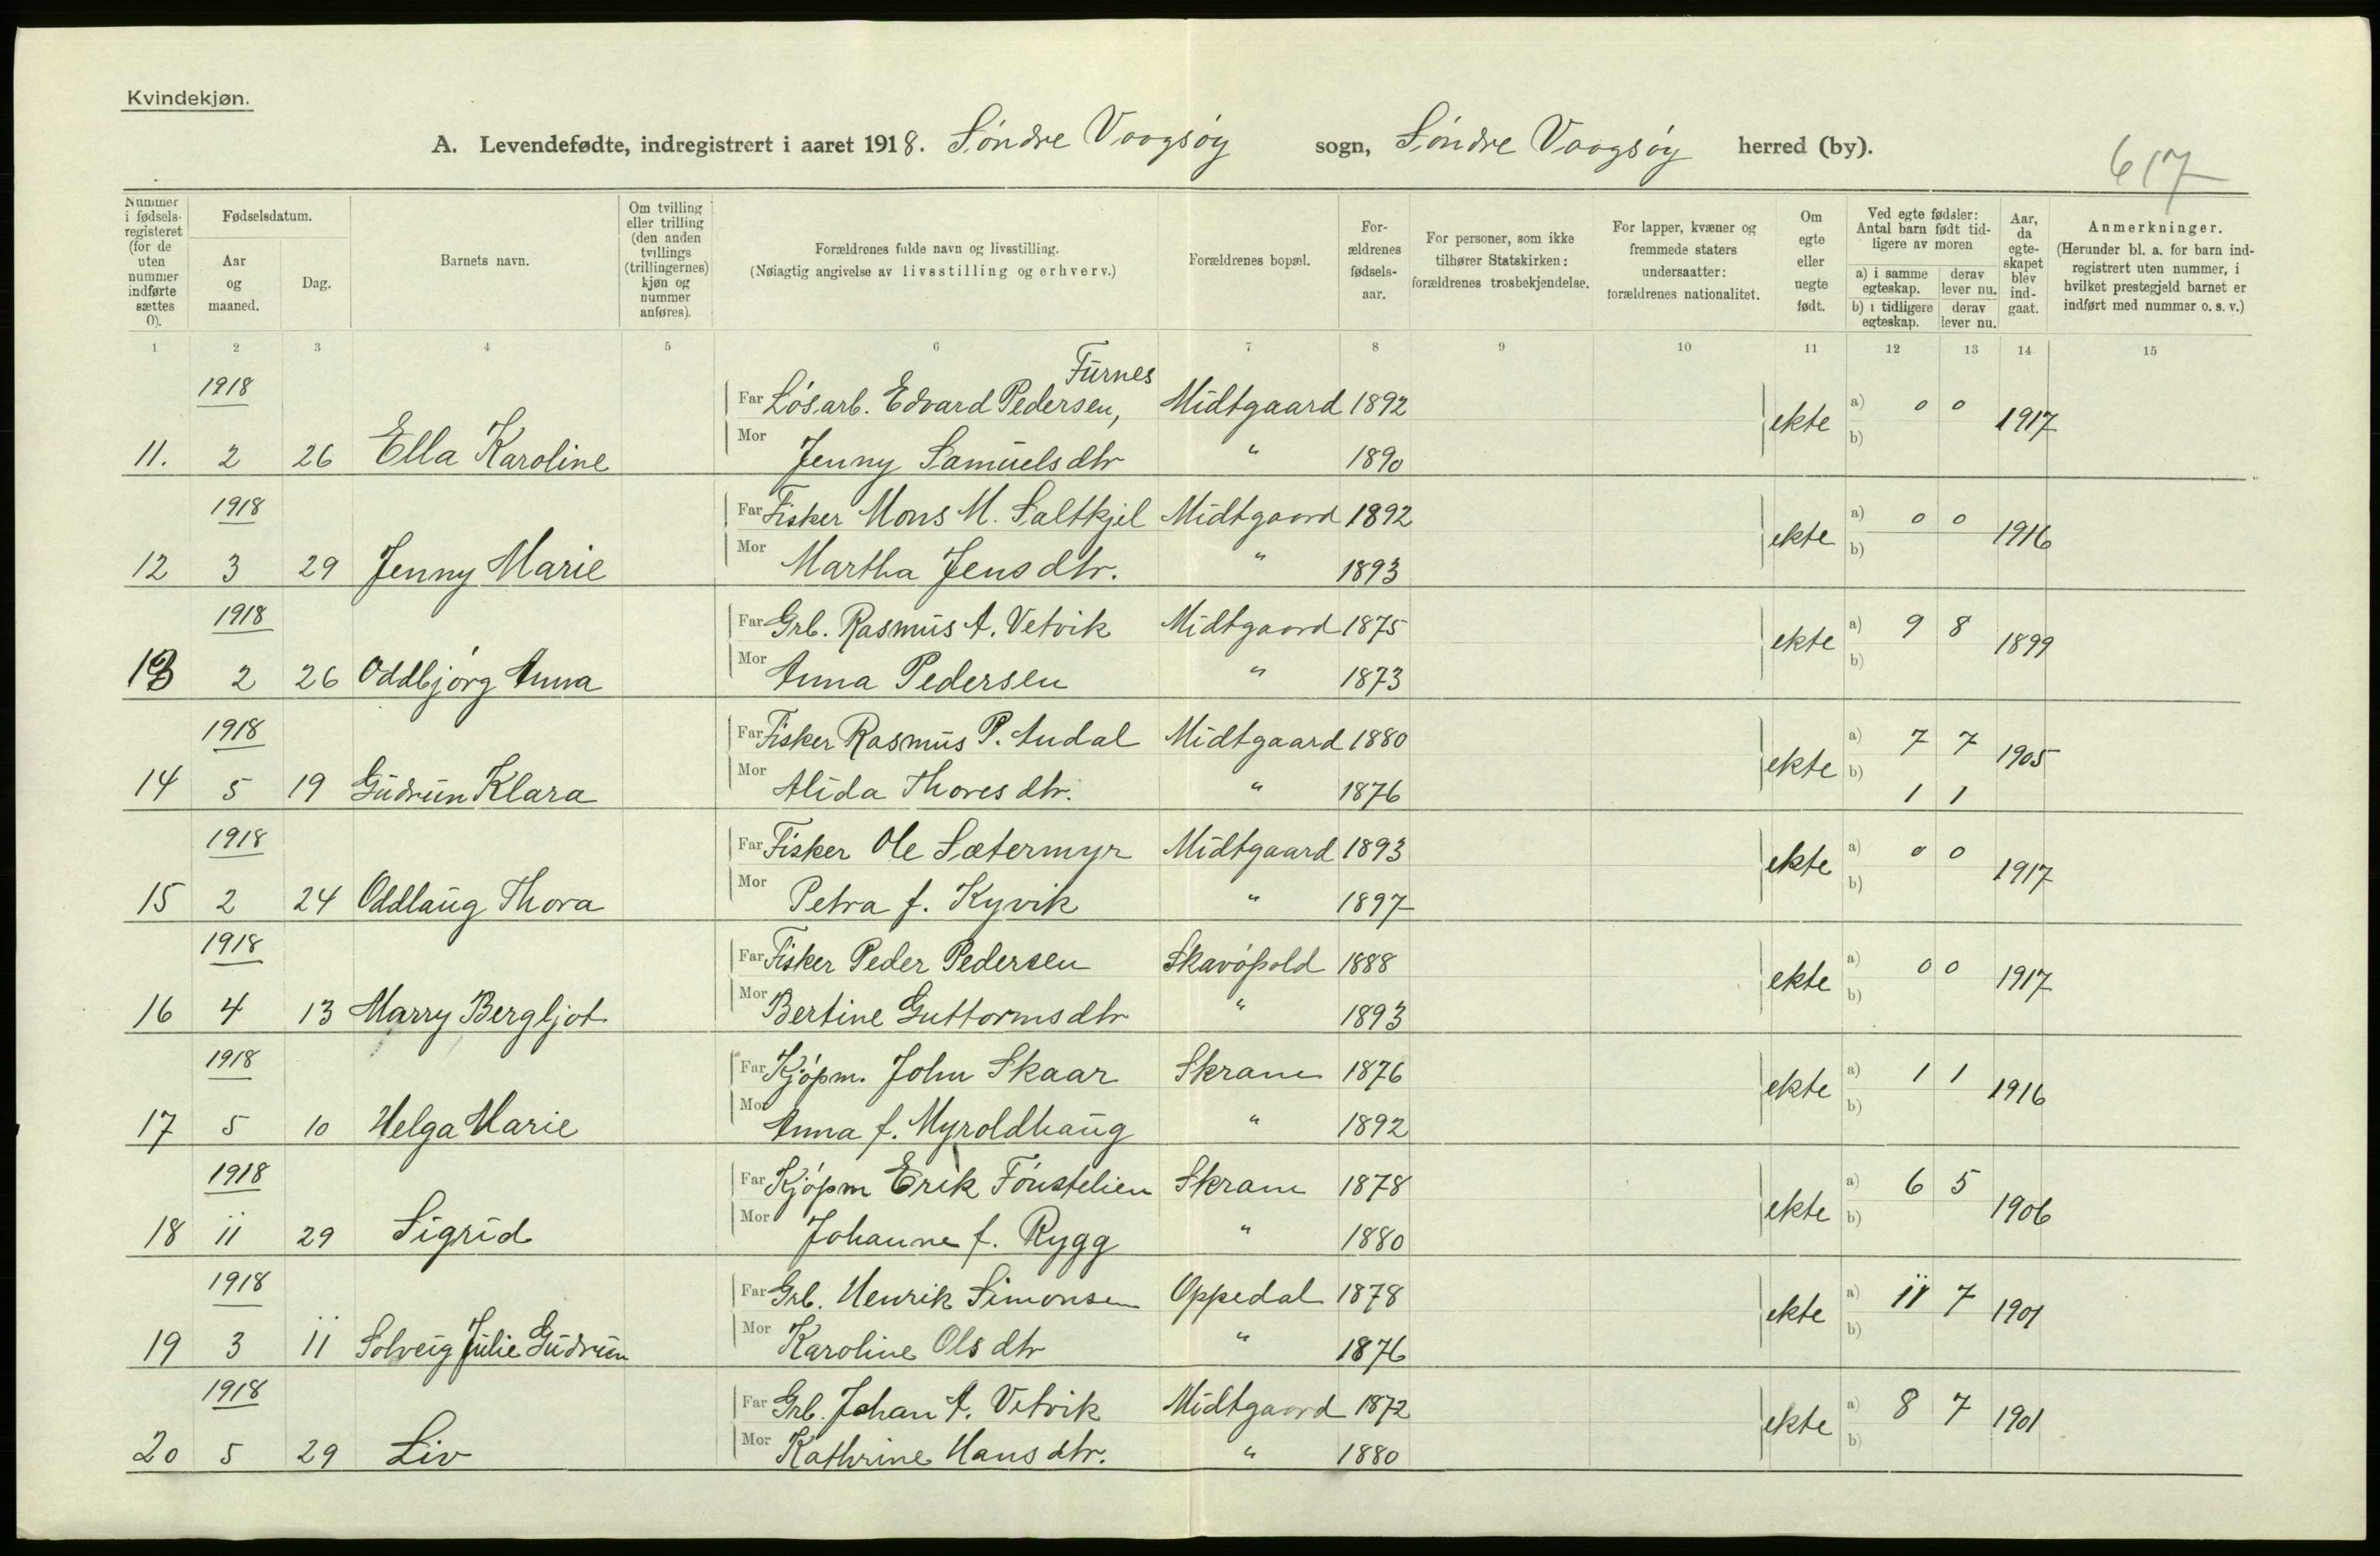 Kvindekjøn.
A. Levendefødte, indregistrert i aaret 1918. Søndre Vaagsøy sogn, Søndre Vaagsøy herred (by).
617
Nummer i fødsels-registeret (for de uten nummer indførte sættes 0).
Fødselsdatum.
Aar og maaned.
Dag.
Barnets navn.
Om tvilling eller trilling (den anden tvillings (trillingernes) kjøn og nummer anføres).
Forældrenes fulde navn og livsstilling.
(Nøiagtig angivelse av livsstilling og erhverv.)
Forældrenes bopæl.
For-ældrenes fødsels-aar.
For personer, som ikke tilhører Statskirken: forældrenes trosbekjendelse.
For lapper, kvæner og fremmede staters undersaatter: forældrenes nationalitet.
Om egte eller uegte født.
Ved egte fødsler: Antal barn født tid-ligere av moren
a) i samme egteskap. derav lever nu.
b) i tidligere egteskap. derav lever nu.
Aar, da egte-skapet blev ind-gaat.
Anmerkninger.
(Herunder bl. a. for barn ind-registrert uten nummer, i hvilket prestegjeld barnet er indført med nummer o. s. v.)
1 2 3 4 5 6 7 8 9 10 11 12 13 14 15
Furnes
1918 Far Løsarb. Edvard Pedersen, Midtgaard 1892 ekte a) 0 0 1917
11. 2 26 Ella Karoline Mor Jenny Samuelsdtr " 1890 b)
1918 Far Fisker Mons M. Saltkjel Midtgaard 1892 ekte a) 0 0 1916
12 3 29 Jenny Marie Mor Martha Jensdtr. " 1893 b)
1918 Far Grb. Rasmus A. Vetvik Midtgaard 1875 ekte a) 9 8 1899
13 2 26 Oddbjørg Anna Mor Anna Pedersen " 1873 b)
1918 Far Fisker Rasmus P. Audal Midtgaard 1880 ekte a) 7 7 1905
14 5 19 Gudrun Klara Mor Alida Thoresdtr. " 1876 b) 1 1
1918 Far Fisker Ole Sætermyr Midtgaard 1893 ekte a) 0 0 1917
15 2 24 Oddlaug Thora Mor Petra f. Kyvik " 1897 b)
1918 Far Fisker Peder Pedersen Skavøpold 1888 ekte a) 0 0 1917
16 4 13 Marry Bergljot Mor Bertine Guttormsdtr " 1893 b)
1918 Far Kjøpm. John Skaar Skram 1876 ekte a) 1 1 1916
17 5 10 Helga Marie Mor Anna f. Myroldhaug " 1892 b)
1918 Far Kjøpm Erik Fønstelien Skram 1878 ekte a) 6 5 1906
18 11 29 Sigrid Mor Johanne f. Rygg " 1880 b)
1918 Far Grb. Henrik Simonsen Oppedal 1878 ekte a) 11 7 1901
19 3 11 Solveig Julie Gudrun Mor Karoline Olsdtr " 1876 b)
1918 Far Grb. Johan A. Vetvik Midtgaard 1872 ekte a) 8 7 1901
20 5 29 Liv Mor Kathrine Hansdtr. " 1880 b)